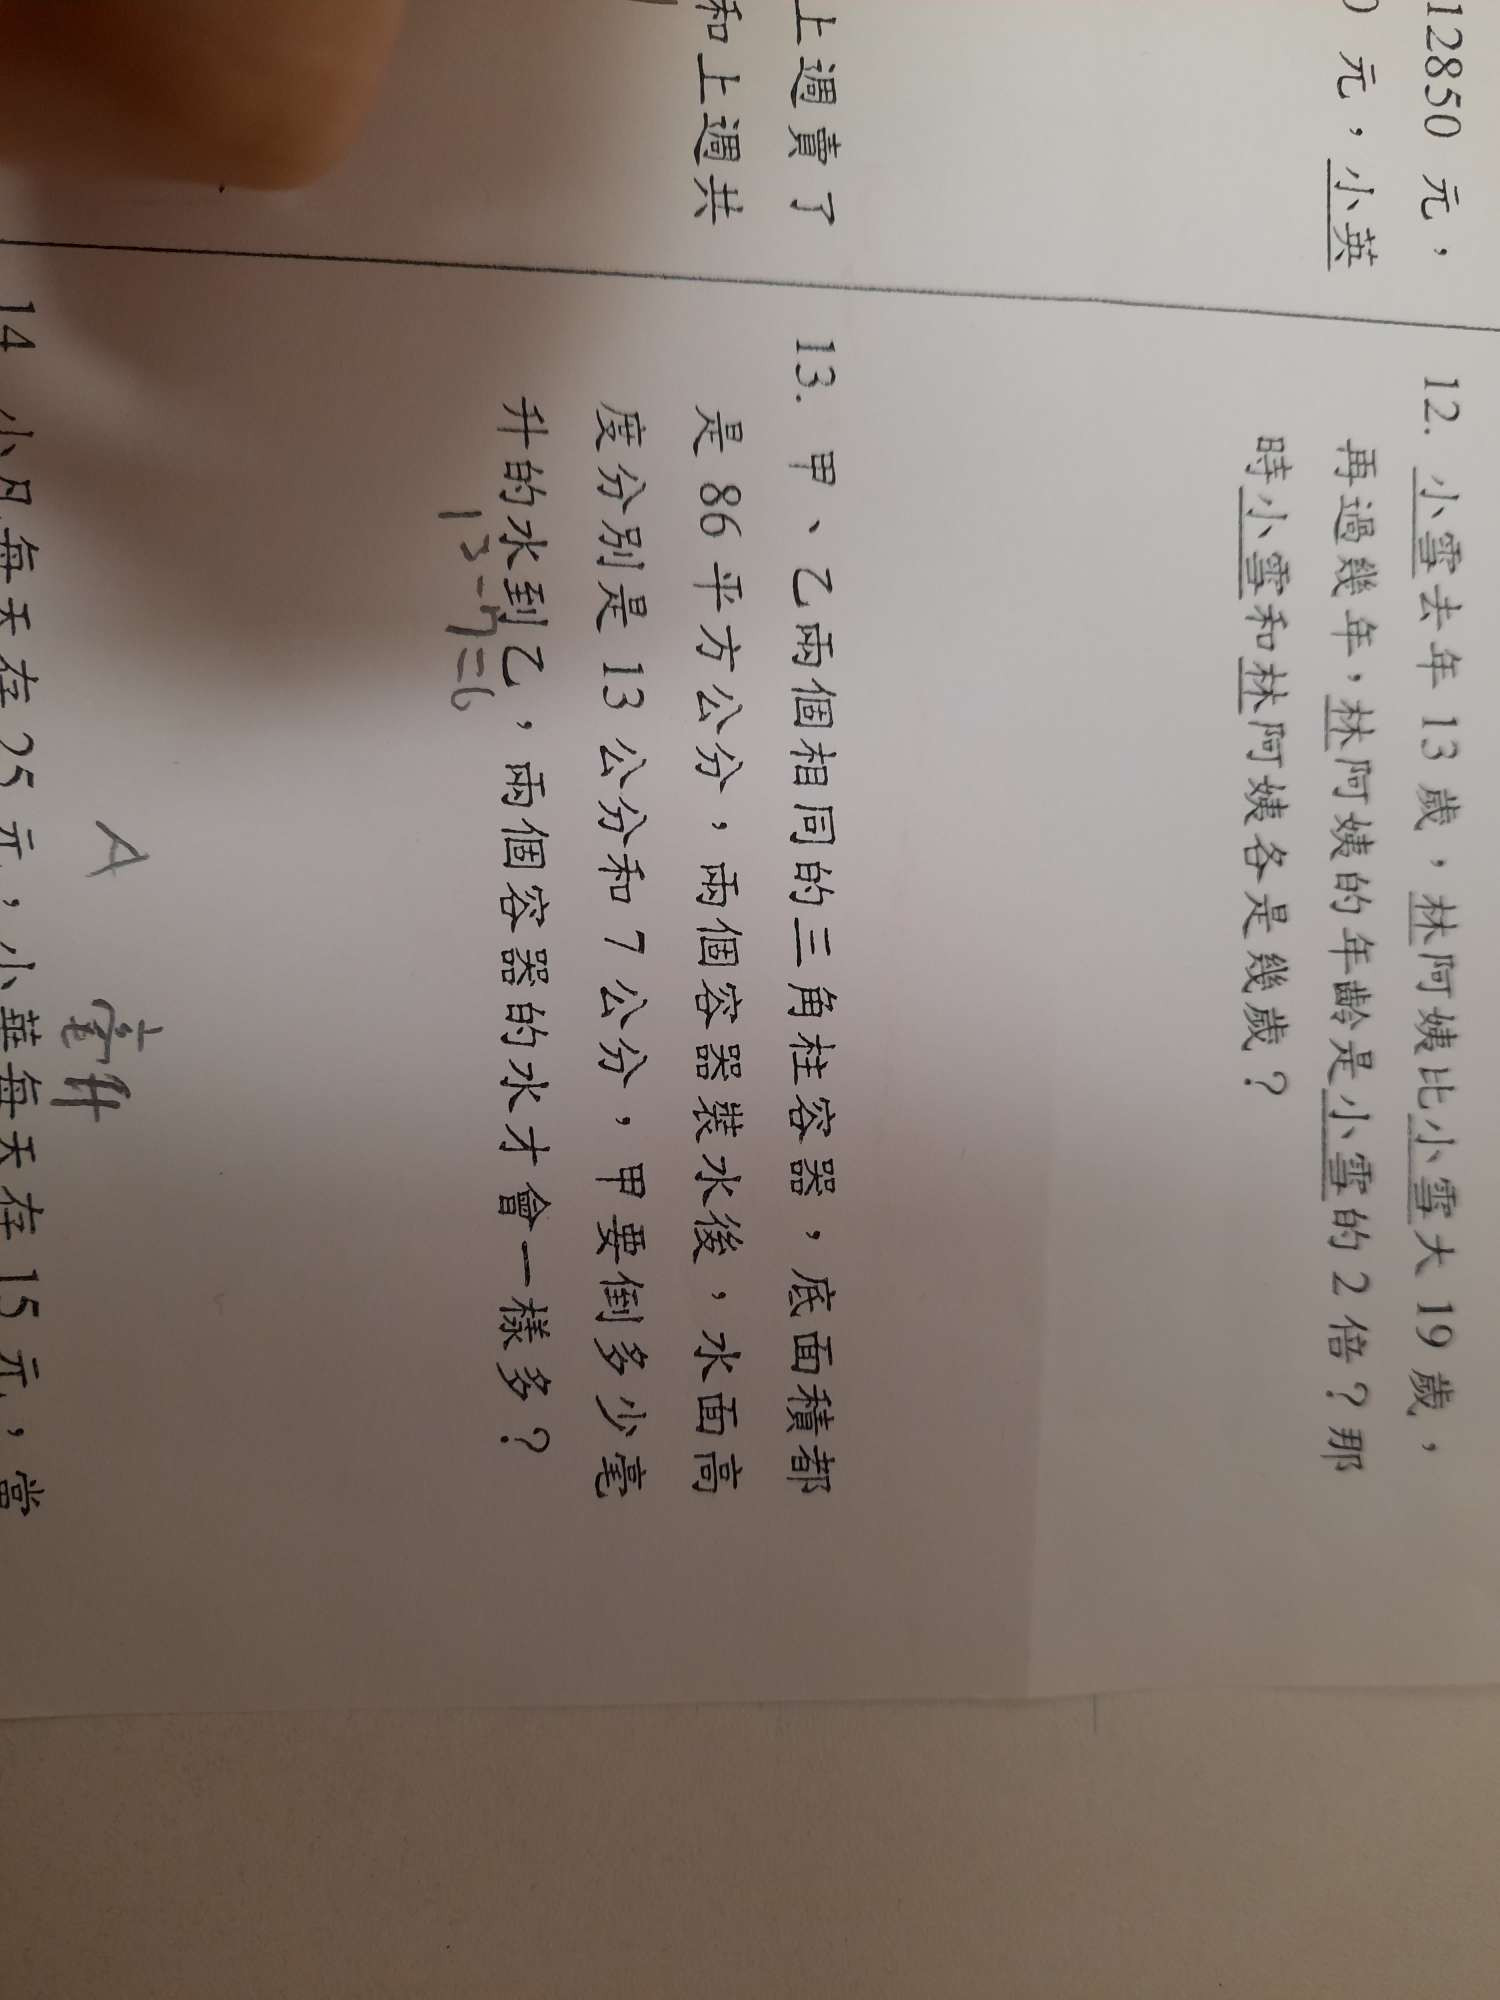 12850 元，
0 元，小英
上週賣了
和上週共
12. 小雪去年 13 歲，林阿姨比小雪大 19 歲，
再過幾年，林阿姨的年齡是小雪的 2 倍？那
時小雪和林阿姨各是幾歲？
13. 甲、乙兩個相同的三角柱容器，底面積都
是 86 平方公分，兩個容器裝水後，水面高
度分別是 13 公分和 7 公分，甲要倒多少毫
升的水到乙，兩個容器的水才會一樣多？
13-7=6
A 毫升
14 小凡每天存 25 元，小華每天存 15 元，當